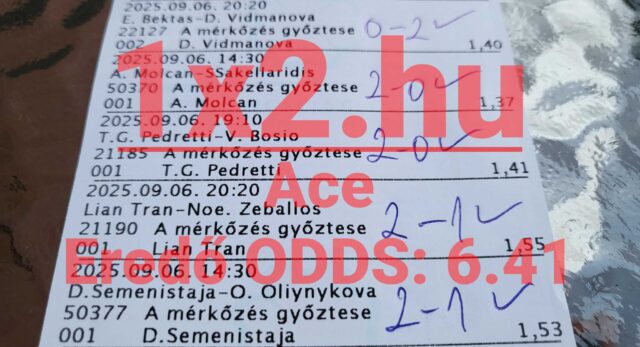 2025.09.06. 20:20
E. Bektas-D. Vidmanova
22127 A mérkőzés győztese 0-2 ✓
002 D. Vidmanova 1,40
2025.09.06. 14:30
A. Molcan-SSakellaridis
50370 A mérkőzés győztese 2-0 ✓
001 A. Molcan 1,37
1x2.hu
2025.09.06. 19:10
T.G. Pedretti-V. Bosio
21185 A mérkőzés győztese 2-0 ✓
001 T.G. Pedretti 1,41
Ace
2025.09.06. 20:20
Lian Tran-Noe. Zeballos
21190 A mérkőzés győztese 2-1 ✓
001 Lian Tran 1,55
Eredő ODDS: 6.41
2025.09.06. 14:30
D.Semenistaja-O. Oliynykova
50377 A mérkőzés győztese 2-1 ✓
001 D.Semenistaja 1,53